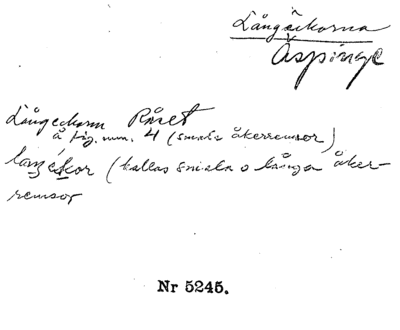 Långäkorna
Äspinge
Långeckorn Råset
å fig. num. 4 (smala åkerremsor)
(kallas smala o långa åker-
remsor
Nr 5245.